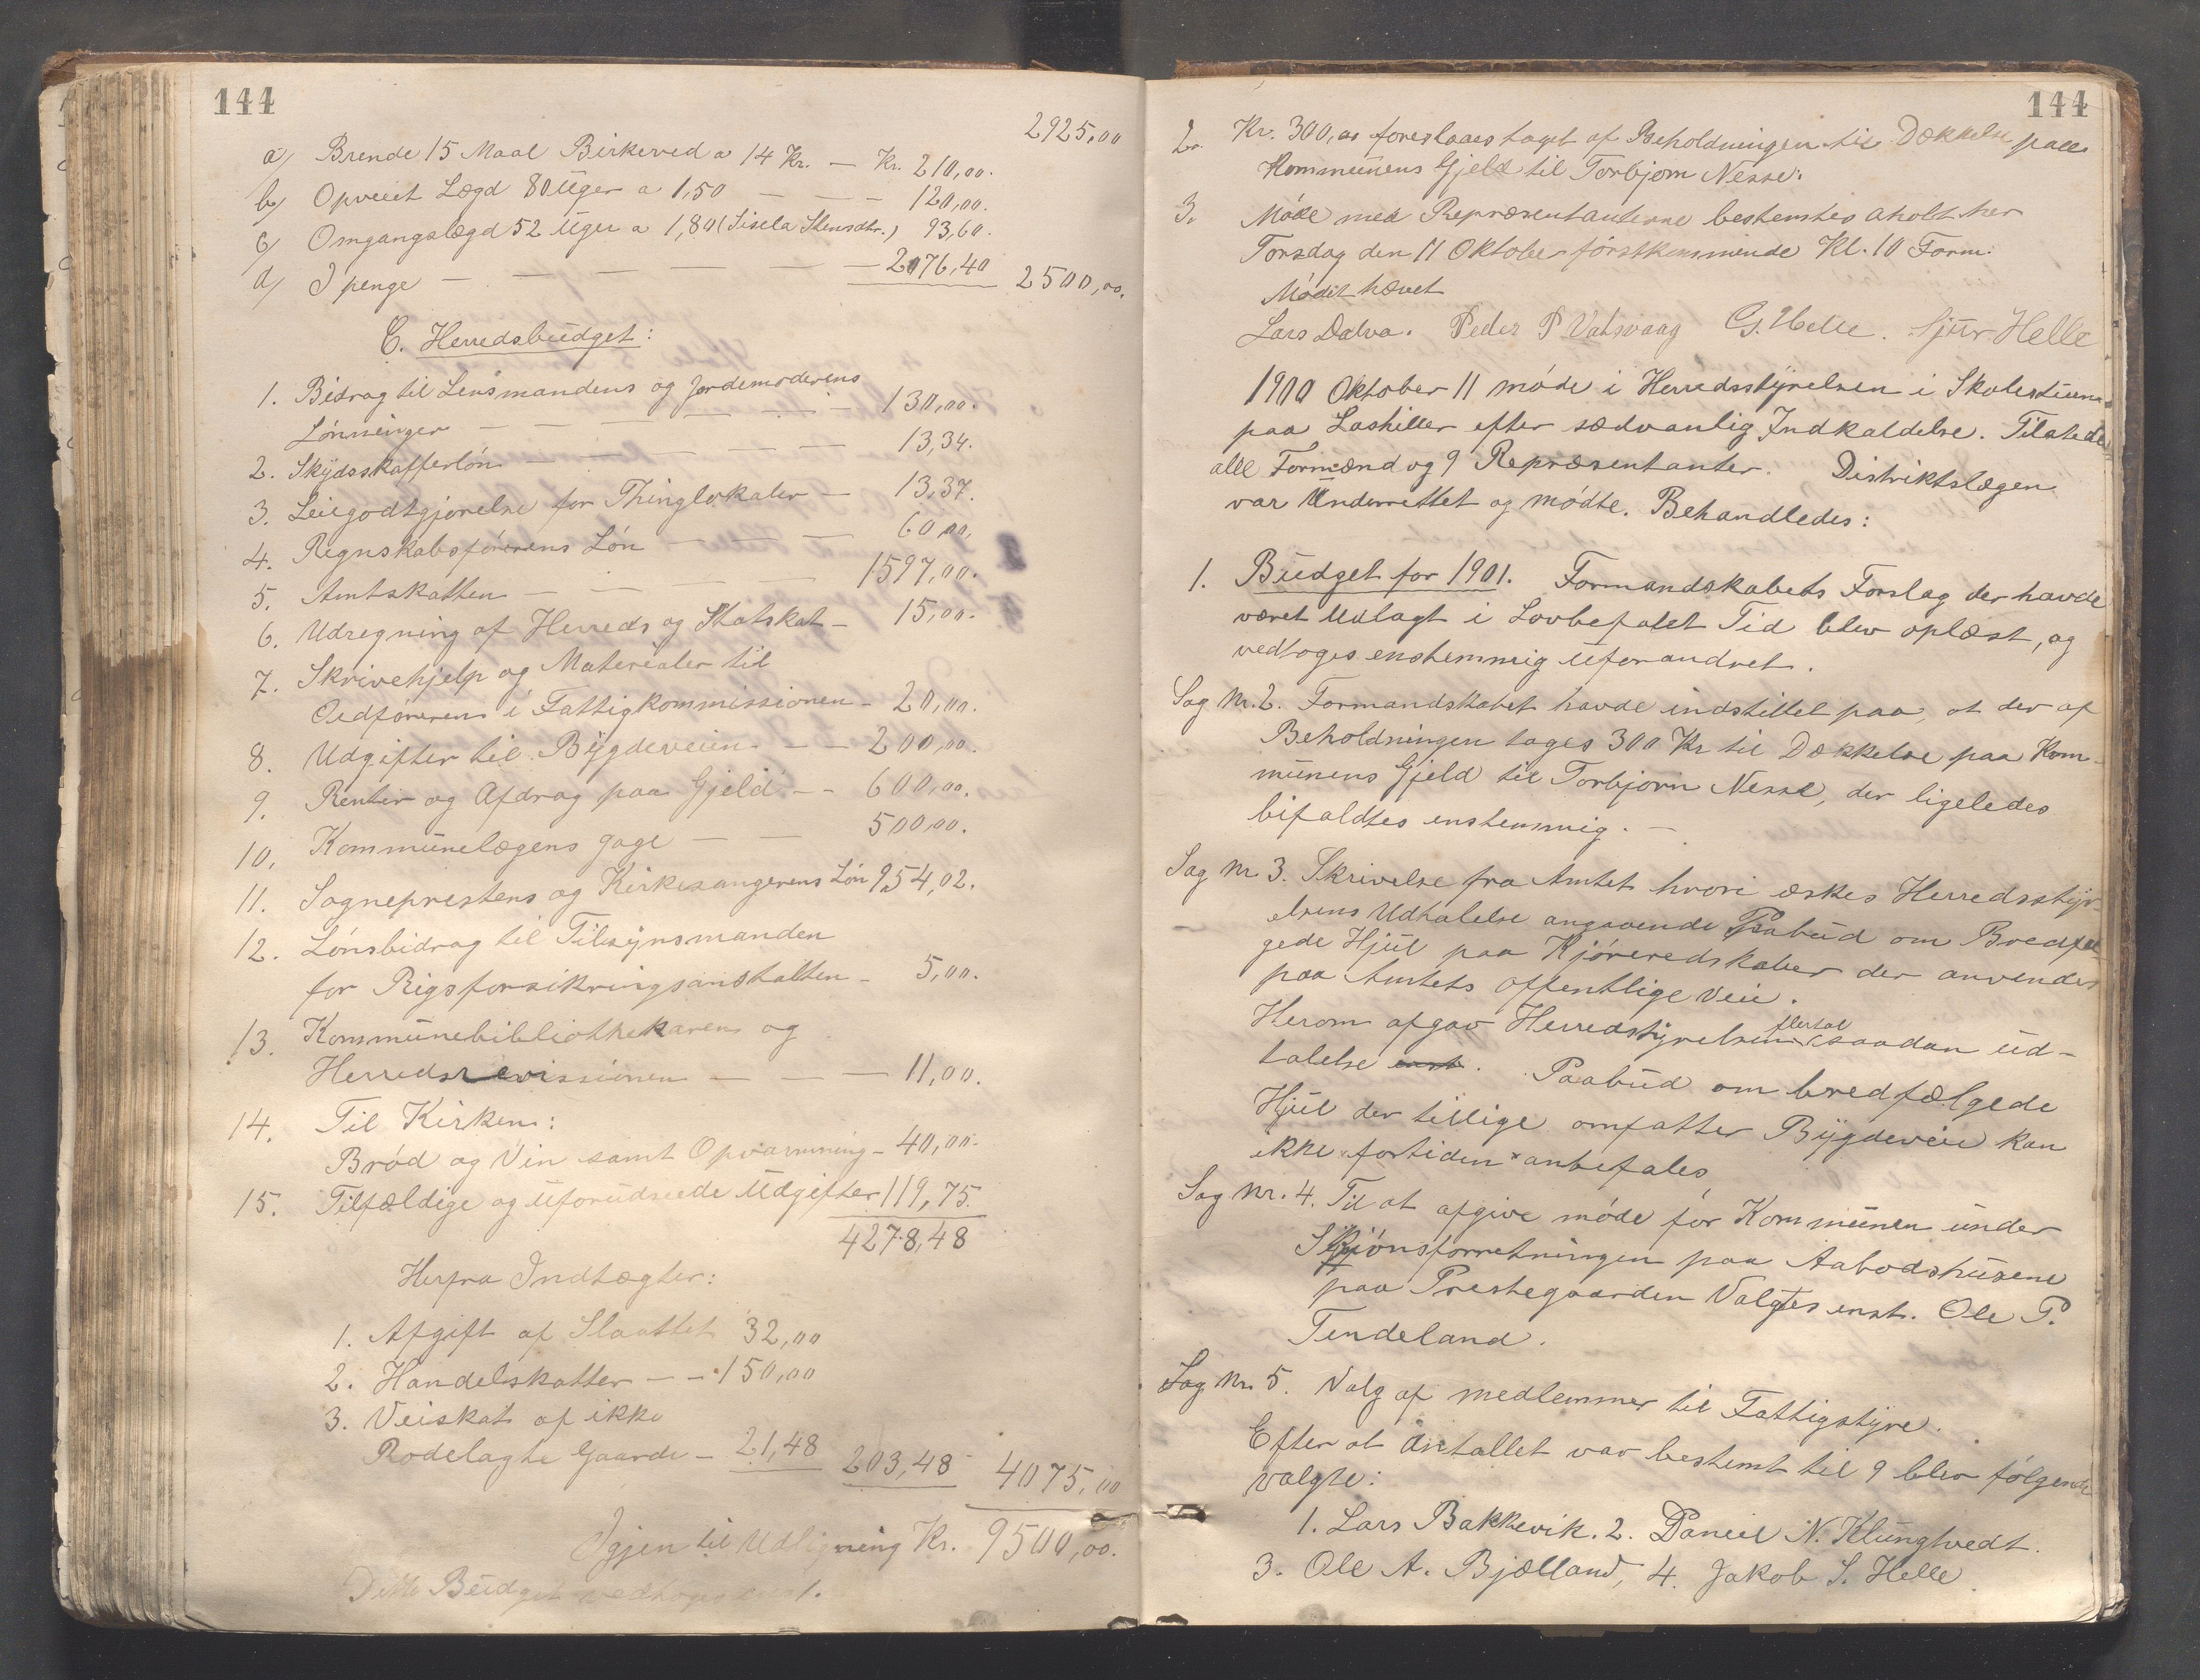 144
2925,00
a) Brende 15 Maal Birkeved a 14 Kr. — Kr. 210,00.
b) Opveiet Lægd 80 Uger a 1,50 — — — 120,00.
c) Omgangslægd 52 Uger a 1,80 (Sisela Stensdtr.) 93,60.
d) I penge — — — — — — 2076,40 2500,00.
C. Herredsbudget:
1. Bidrag til Lensmandens og Jordemoderens
Lønninger — — — — — 130,00.
2. Skydsskafferløn — — — — — 13,34.
3. Leiegodtgjørelse for Thinglokaler — 13,37.
4. Regnskabsførerens Løn — — — 60,00.
5. Amtskatten — — — — 1597,00.
6. Udregning af Herreds og Statskat — 15,00.
7. Skrivehjelp og Materialer til
Ordføreren i Fattigkommissionen — 20,00.
8. Udgifter til Bygdeveien — — 200,00.
9. Renter og Afdrag paa Gjeld — — 600,00.
10. Kommunelægens gage — — 500,00.
11. Sogneprestens og Kirkesangerens Løn 954,02.
12. Lønsbidrag til Tilsynsmanden
for Rigsforsikringsanstalten — 5,00.
13. Kommunebibliothekaren og
Herredsrevissionen — — — 11,00.
14. Til Kirken:
Brød og Vin samt Opvarmning — 40,00.
15. Tilfældige og uforudseede Udgifter 119,75.
4278,48
Herfra Indtægter:
1. Afgift af Slaattet 32,00
2. Handelskatter — — 150,00
3. Veiskat af ikke
Rodelagte Gaarde — 21,48 203,48 4075,00
Igjen til Udligning Kr. 9500,00.
Dette Budget vedtoges enst.
144
2. Kr. 300,00 foreslaaes taget af Beholdningen til Dækkelse paa
Kommunens Gjeld til Torbjørn Nesse.
3. Møde med Repræsentanterne bestemtes aholdt her
Torsdag den 11 Oktober førstkommende Kl. 10 Form.
Mødet hævet
Lars Dalva. Peder P Vatsvaag G. Helle. Sjur Helle
1900 Oktober 11 møde i Herredsstyrelsen i Skolestuen
paa Loshiller efter sædvanlig Indkaldelse. Tilstede
alle Formænd og 9 Repræsentanter. Distriktslægen
var Underrettet og mødte. Behandledes:
1. Budget for 1901. Formandskabets Forslag der havde
været Udlagt i Lovbefalet Tid blev oplæst, og
vedtoges enstemmig uforandret.
Sag Nr. 2. Formandskabet havde indstillet paa, at der af
Beholdningen tages 300 Kr til Dækkelse paa Kom-
munens Gjeld til Torbjørn Nesse, der ligeledes
bifaldtes enstemmig. —
Sag Nr. 3. Skrivelse fra Amtet hvori æskes Herredsstyr-
elsens Udtalelse angaaende Paabud om Bredfæl-
gede Hjul paa Kjøreredskaber der anvendes
paa Amtets offentlige Veie.
flertal
Herom afgav Herredstyrelsens saadan ud-
talelse enst. Paabud om bredfælgede
Hjul der tillige omfatter Bygdeveie kan
ikke fortiden anbefales
Sag Nr. 4. Til at afgive møde for Kommunen under
Skjønsforretningen paa Aabodshusene
paa Prestegaarden Valgtes enst. Ole P.
Tendeland.
Sag Nr. 5. Valg af medlemmer til Fattigstyre.
Efter at Antallet var bestemt til 9 blev følgende
valgte:
1. Lars Bakkevik. 2. Daniel N. Klungtvedt.
3. Ole A. Bjælland, 4. Jakob S. Helle.